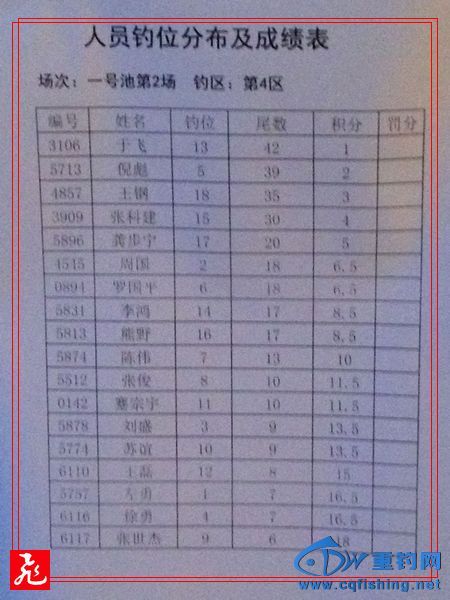 人员钓位分布及成绩表
场次：一号池第2场 钓区：第4区
编号 姓名 钓位 尾数 积分 罚分
3106 于飞 13 42 1
5713 倪彪 5 39 2
4857 王钢 18 35 3
3909 张科建 15 30 4
5896 龚步宁 17 20 5
4545 周国 2 18 6.5
0894 罗国平 6 18 6.5
5831 李鸿 14 17 8.5
5813 熊野 16 17 8.5
5874 陈伟 7 13 10
5512 张俊 8 10 11.5
0142 蹇宗宇 11 10 11.5
5878 刘盛 3 9 13.5
5774 苏谊 10 9 13.5
6110 王磊 12 8 15
5757 左勇 1 7 16.5
6116 徐勇 4 7 16.5
6117 张世杰 9 6 18
重钓网
www.cqfishing.net